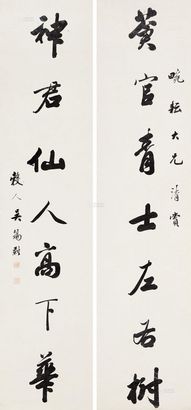 畹耘大兄清賞
蓂官青士左右樹
神君仙人高下華
穀人吳錫麒